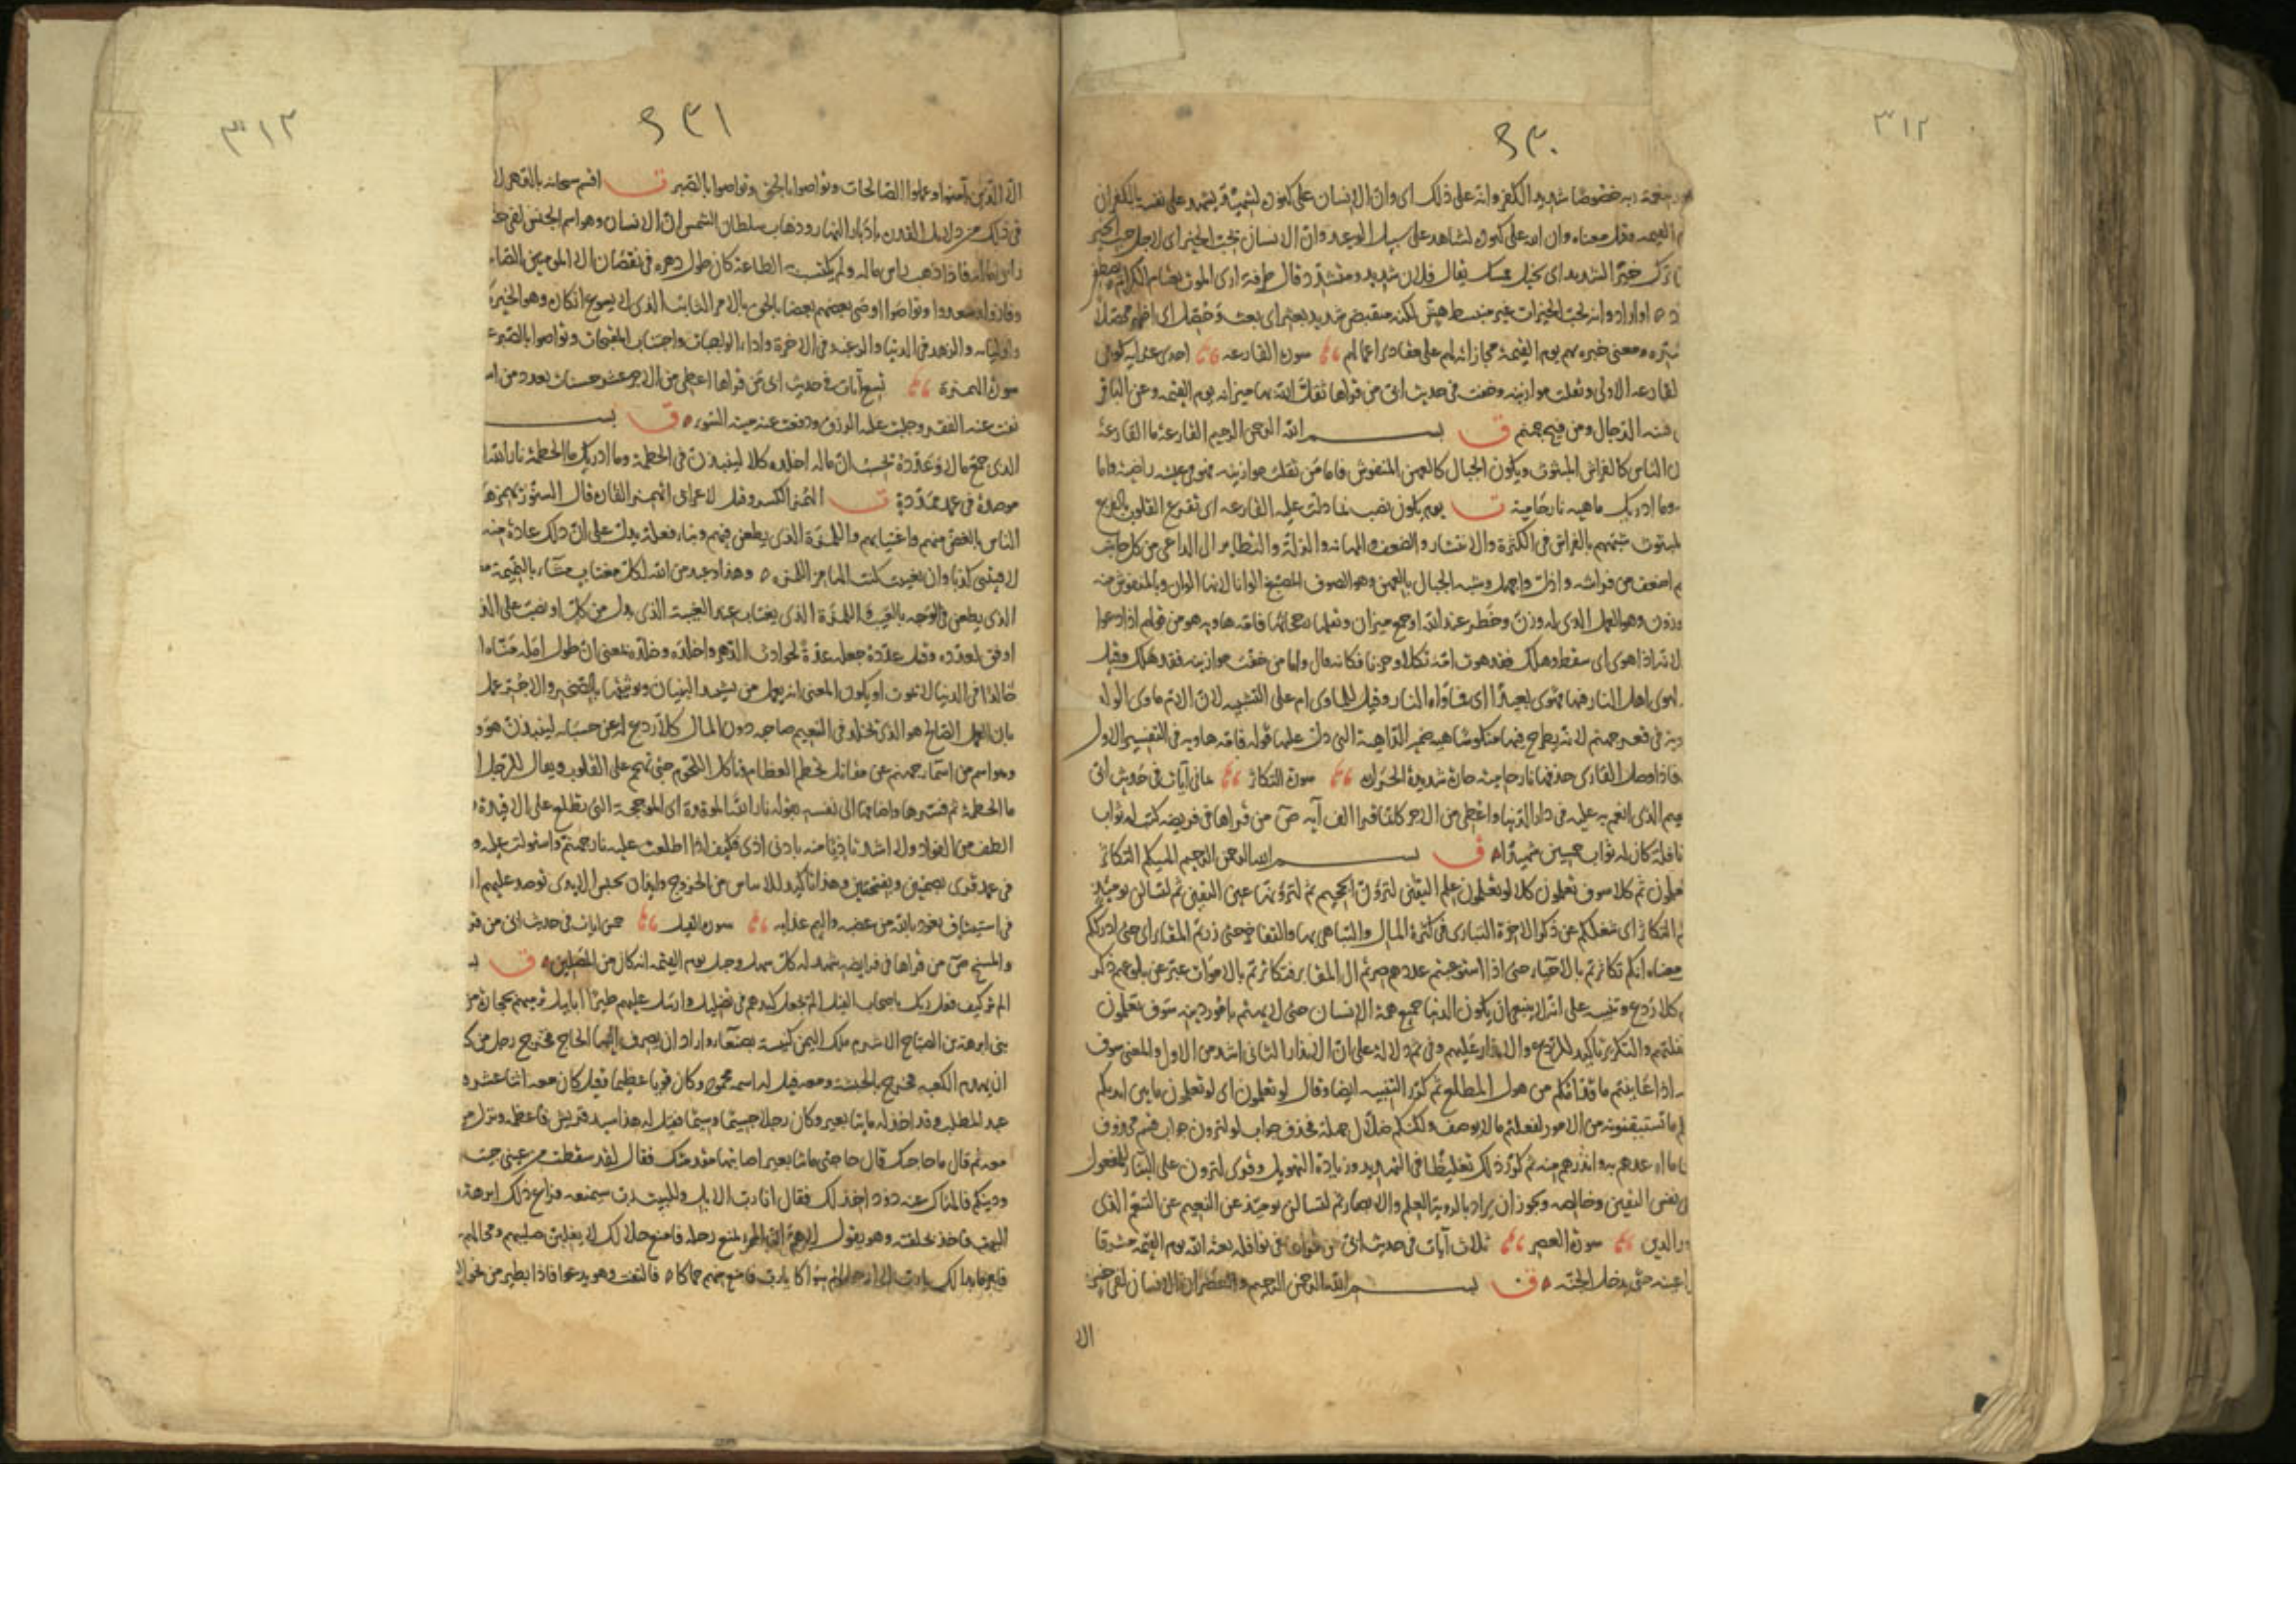 ٣١٢
٦٣٠
لنعمة ربه خصوصا شديد الكفر وانه على ذلك اى وان الانسان على كنوده لشهيد يشهد على نفسه بالكفران
القيمه وقيل معناه وان الله على كنوده لشاهد على سبيل الوعيد وان الانسان لحب الخير اى لاجل حب الخير
ترك خيرا لشديد اى بخيل ممسك يقال فلان شديد ومتشدد قال طرفة ارى الموت يعتام الكرام ويصطفى
او اراد وانه لحب الخيرات غير منبسط هش لكنه منقبض شديد بعثر اى بعث وحصل اى اظهر محصلا
ومعنى خبره بهم يوم القيمة مجازاته لهم على مقادير اعمالهم سورة القارعه احدى عشر اية كوفى
القارعه الاولى وثقلت موازينه وخفت فى حديث ابى من قراها ثقل الله بها ميزانه يوم القيمه وعن الباقر
فتنه الدجال ومن فيح جهنم ق بسم الله الرحمن الرحيم القارعة ما القارعة
الناس كالفراش المبثوث ويكون الجبال كالعهن المنفوش فاما من ثقلت موازينه فهو فى عيشه راضية واما
وما ادريك ماهيه نار حامية ت يوم يكون نصب بما دلت عليه القارعه اى تقرع القلوب بالفزع
المبثوث شبههم بالفراش فى الكثرة والانتشار والضعف والمهانه والذلة والتطاير الى الداعى من كل جانب
اضعف من فراشه واذل واجهل وشبه الجبال بالعهن وهو الصوف المصبغ الوانا لانها الوان وبالمنفوش منه
وزن وهو العمل الذى له وزن وخطر عند الله او جمع ميزان وثقلها رجحانها فامه هاويه هو من قولهم اذا دعوا
لانه اذا هوى اى سقط وهلك فقد هوت امه ثكلا وحزنا فكانه قال واما من خفت موازينه فقد هلك وقيل
اهوى اهل النار فيها مهوى بعيدا اى فماواه النار وقيل للماوى ام على التشبيه لان الام ماوى الولد
فى قعر جهنم لانه يطرح فيها منكوسا هيه ضمير الداهية التى دل عليها قوله فامه هاويه فى التفسير الاول
فاذا وصل القارى حذفها نار حاميه حارة شديدة الحرارة سورة التكاثر ثمانى آيات فى حديث ابى
النعيم الذى انعم به عليه فى دار الدنيا واعطى من الاجر كانما قرا الف آيه ص من قراها فى فريضه كتب له ثواب
نافلة كان له ثواب خمسين شهيدا ق بسم الله الرحمن الرحيم الهيكم التكاثر
تعلمون ثم كلا سوف تعلمون كلا لو تعلمون علم اليقين لترون الجحيم ثم لترونها عين اليقين ثم لتسالن يومئذ
التكاثر اى شغلكم عن ذكر الاخرة التبارى فى كثرة المال والتباهى بها والتفاخر حتى زرتم المقابر اى حتى ادرككم
معناه انكم تكاثرتم بالاحياء حتى اذا استوعبتم عددهم صرتم الى المقابر فتكاثرتم بالاموات عبر عن بلوغهم ذكر
كلا ردع وتنبيه على انه لا ينبغى ان يكون الدنيا جميع همة الانسان حتى لا يهتم بامور دينه سوف تعلمون
والتكرير تاكيد للردع والانذار عليهم وفى ثم دلالة على ان الانذار الثانى اشد من الاول والمعنى سوف
اذا عاينتم ما قدامكم من هول المطلع ثم كرر التنبيه ايضا وقال لو تعلمون اى لو تعلمون ما بين ايديكم
ما تستيقنونه من الامور لفعلتم ما لا يوصف ولكنكم ضلال جهلة فحذف جواب لو لترون جواب قسم محذوف
ما اوعدهم به وانذرهم منه ثم كرر ذلك تغليظا فى التهديد وزيادة التهويل وقرى لترون على البناء للمفعول
نفس اليقين وخالصه ويجوز ان يراد بالرويه العلم والابصار ثم لتسالن يومئذ عن النعيم عن التنعم الذى
الدين سورة العصر ثلاث آيات فى حديث ابى من قراها فى نوافله بعثه الله يوم القيمه مشرقا
عينه حتى يدخل الجنة ق بسم الله الرحمن الرحيم والعصر ان الانسان لفى خسر
الا
٣١٣
٦٣١
الا الذين آمنوا وعملوا الصالحات وتواصوا بالحق وتواصوا بالصبر ت اقسم سبحانه بالدهر لان
فى ذلك من دلايل القدرة بادبار النهار وذهاب سلطان الشمس ان الانسان وهو اسم الجنس لفى خسر
فاذا ذهب راس ماله ولم يكتسب به الطاعة كان طول دهره فى نقصان الا المومنين الصا
وفازوا وسعدوا وتواصوا اوصى بعضهم بعضا بالحق بالامر الثابت الذى لا يسوغ انكاره وهو الخير
والزهد فى الدنيا والرغبه فى الاخرة واداء الواجبات واجتناب المقبحات وتواصوا بالصبر
سورة الهمزة تسع آيات فى حديث ابى من قراها اعطى من الاجر عشر حسنات بعدد من
نفت عنه الفقر وجلبت عليه الرزق ودفعت عنه ميتة السوء ق بس
الذى جمع مالا وعدده يحسب ان ماله اخلده كلا لينبذن فى الحطمة وما ادريك ما الحطمة نار الله
موصدة فى عمد ممددة ت الهمز الكسر وقيل لاعرابى اتهمز الفارة قال السنور يهمزها
الناس بالغض منهم واغتيابهم واللمزة الذى يطعن فيهم وبناء فعلة يدل على ان ذلك عادة منه
لاقيتنى كذبا وان تغيبت كنت الهامز اللمزه وهذا وعيد من الله لكل مغتاب مشاء بالنميمة
الذى يطعن فى الوجه بالعيب واللمزة الذى يغتاب عند الغيبة الذى بدل من كل او نصب على الذم
اوفق لعدده وقيل عدده جعله عدة لحوادث الدهر واخلده وخلده بمعنى ان طول امله مناه
خالدا فى الدنيا لا يموت او يكون المعنى انه يعمل من يشيد البنيان ويوثقها بالصخر والاجر عمل
بان العمل الصالح هو الذى يخلد فى النعيم صاحبه دون المال كلا ردع له عن حسبانه لينبذن هو و
وهو اسم من اسماء جهنم عن مقاتل تحطم العظام وتاكل اللحوم حتى تهجم على القلوب ويقال للرجل
ما الحطمة ثم فسرها واضافها الى نفسه بقوله نار الله الموقدة اى الموججة التى تطلع على الافيدة
الطف من الفواد ولا اشد تاذيا منه بادنى اذى فكيف اذا اطلعت عليه نار جهنم واستولت عليه
فى عمد قرى بضمتين وبفتحتين وهذا تاكيد للاياس من الخروج وايذان بحبس الابدى توصد عليهم
فى استيثاق نعوذ بالله من غضبه واليم عذابه سورة الفيل خمس ايات فى حديث ابى من قر
والمسخ ص من قراها فى فرايضه شهد له كل سهل وجبل يوم القيمه انه كان من المصلين ق ب
الم تر كيف فعل ربك باصحاب الفيل الم يجعل كيدهم فى تضليل وارسل عليهم طيرا ابابيل ترميهم بحجارة من
بنى ابرهة بن الصباح الاشرم ملك اليمن كنيسة بصنعاء واراد ان يصرف اليها الحاج فخرج رجل من ك
ان يهدم الكعبه فخرج بالحبشه ومعه فيل له اسمه محمود وكان قويا عظيما وقيل كان معه اثنا عشر
عبد المطلب وقد اخذ له مايتا بعير وكان رجلا جسيما وسيما فقيل له هذا سيد قريش فاعظمه ونزل من
معه ثم قال ما حاجتك قال حاجتى مايتا بعير اصابها مقدمتك فقال لقد سقطت من عينى جيت
ودينكم فالهاك عنه ذود اخذ لك فقال انا رب الابل وللبيت رب سيمنعه فراع ذلك ابرهة
البيت فاخذ بحلقته وهو يقول لاهم ان المرء يمنع رحله فامنع حلالك لا يغلبن صليبهم ومحالهم
يا رب لا ارجو لهم سواكا يا رب فامنع منهم حماكا فالتفت وهو يدعو فاذا بطير من نحو